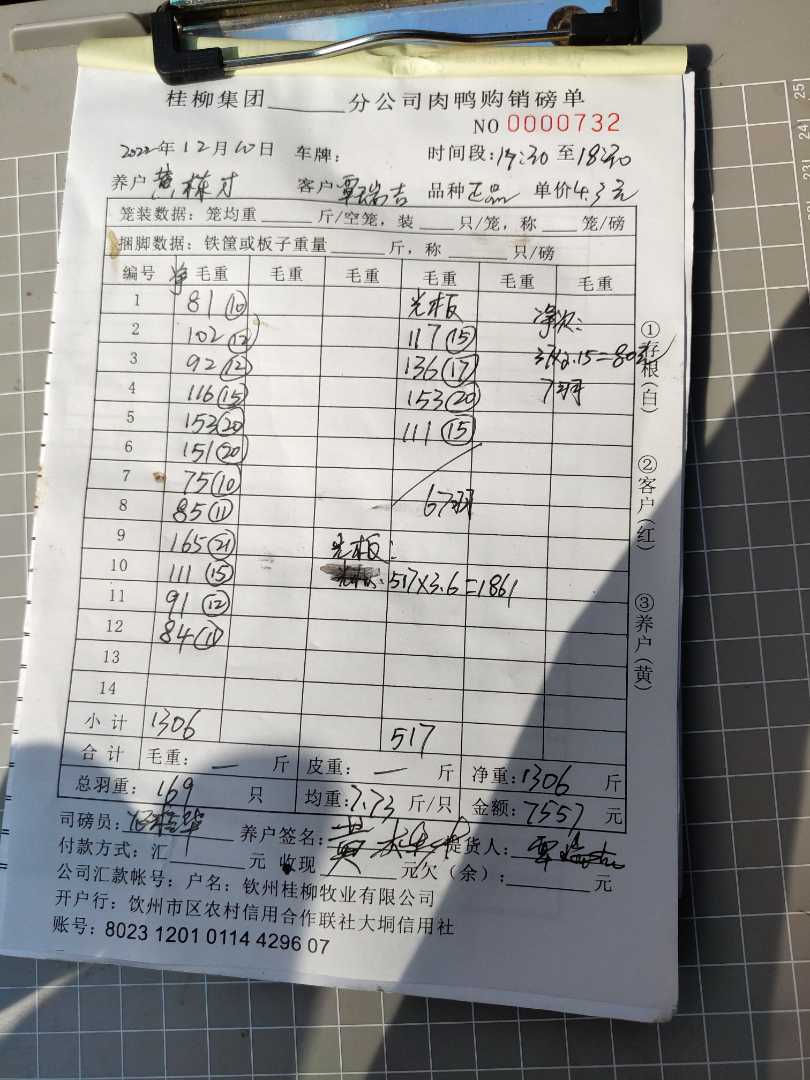 桂柳集团______分公司肉鸭购销磅单
NO 0000732
2022年12月10日 车牌: 时间段:17:30至18:30
养户 客户覃瑞吉 品种正品 单价4.3元
笼装数据: 笼均重____斤/空笼, 装____只/笼, 称____笼/磅
捆脚数据: 铁筐或板子重量____斤, 称____只/磅
编号 净毛重 毛重 毛重 毛重 毛重 毛重
1 81⑩ 光板 净次:
2 102⑫ 117⑮
3 92⑫ 136⑰ =80
4 116⑮ 153⑳ 7羽
5 153⑳ 111⑮
6 151⑳
7 75⑩ 67羽
8 85⑪
9 165㉑ 光板:
10 111⑮ 517×3.6=1861
11 91⑫
12 84⑪
13
14
小计 1306 517
合计 毛重: — 斤 皮重: — 斤 净重:1306 斤
总羽重: 169 只 均重:7.73斤/只 金额:7557元
司磅员: 养户签名: 提货人:
付款方式: 汇______元 收现______元欠(余):______元
公司汇款帐号: 户名: 钦州桂柳牧业有限公司
开户行: 饮州市区农村信用合作联社大垌信用社
账号: 8023 1201 0114 4296 07
①存根(白)
②客户(红)
③养户(黄)
25
24
23